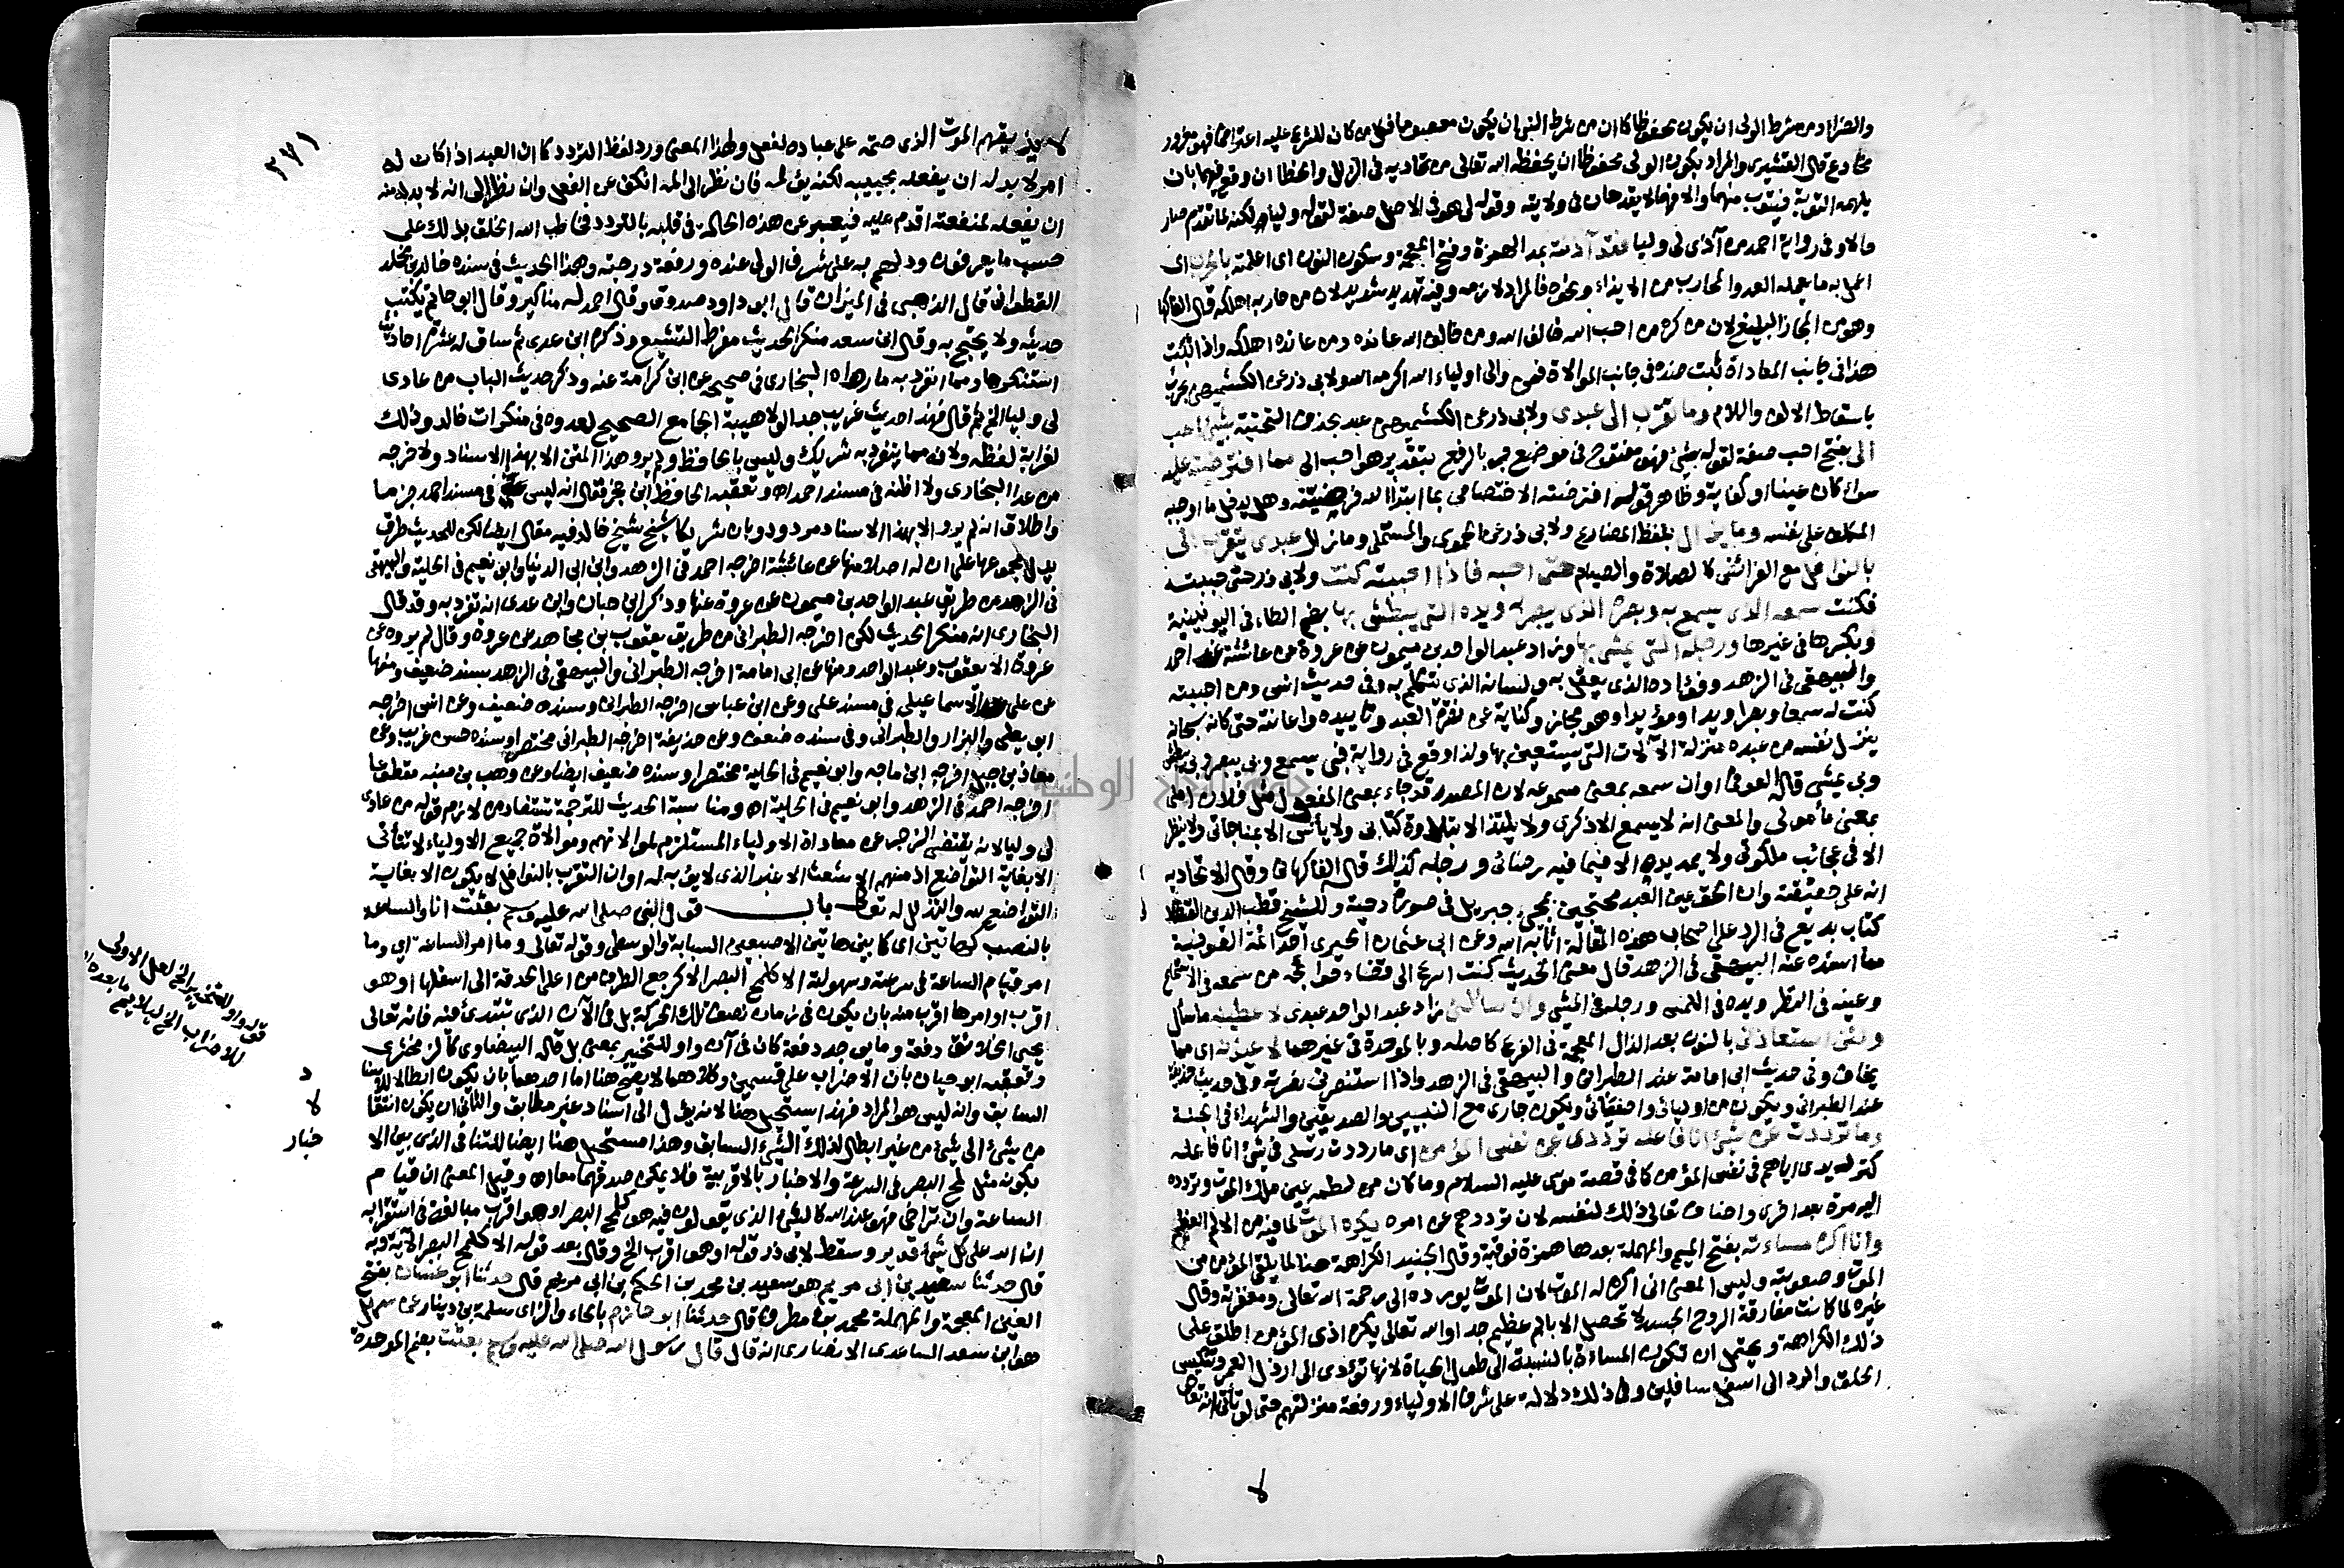 والضراء ومن شرط الولي ان يكون محفوظا كما ان من شرط النبي ان يكون معصوما فكل من كان للشرع عليه اعتراض فهو مغرور
مخادع قال القشيري والمراد بكون الولي محفوظا ان يحفظه الله تعالى من تماديه في الزلل والخطا ان وقع فيهما بان
يلهمه التوبة فيتوب منهما والا فهما لا يقدحان في ولايته وقوله لي هو في الاصل صفة لقوله وليا لكنه لما تقدم صار
حالا وفي رواية احمد من آذى لي وليا فقد آذنته بمد الهمزة وفتح المعجمة وسكون النون اي اعلمته بالحرب اي
اعمل به ما يعمله العدو المحارب من الايذاء ونحوه فالمراد لازمه وفيه تهديد شديد لان من حاربه اهلكه قال الفاكهاني
وهو من المجاز البليغ لان من كره من احب الله خالف الله ومن خالف الله عانده ومن عانده اهلكه واذا ثبت
هذا في جانب المعاداة ثبت ضده في جانب الموالاة فمن والى اولياء الله اكرمه الله ولابي ذر عن الكشميهني بحرب
باسقاط الالف واللام وما تقرب الي عبدي ولابي ذر عن الكشميهني عبد بحذف التحتية بشيء احب
الي بفتح احب صفة لقوله بشيء فهو مفتوح في موضع جر بالرفع بتقدير هو احب الي مما افترضته عليه
سواء كان عينا او كفاية وظاهر قوله افترضته الاختصاص بما ابتدأ الله فرضيته وهل يدخل ما اوجبه
المكلف على نفسه وما يزال بلفظ المضارع ولابي ذر عن الحموي والمستملي وما زال عبدي يتقرب الي
بالنوافل مع الفرائض كالصلاة والصيام حتى احبه فاذا احببته كنت ولابي ذر حتى احببته
فكنت سمعه الذي يسمع به وبصره الذي يبصر به ويده التي يبطش بها بضم الطاء في اليونينية
وبكسرها في غيرها ورجله التي يمشي بها وزاد عبد الواحد بن ميمون عن عروة عن عائشة عند احمد
والبيهقي في الزهد وفؤاده الذي يعقل به ولسانه الذي يتكلم به وفي حديث انس ومن احببته
كنت له سمعا وبصرا ويدا ومؤيدا وهو مجاز وكناية عن نصرة العبد وتأييده واعانته حتى كانه سبحانه
ينزل نفسه من عبده منزلة الآلات التي يستعين بها ولذا وقع في رواية فبي يسمع وبي يبصر وبي يبطش
وبي يمشي قاله الطوفي او ان سمعه بمعنى مسموعه لان المصدر قد جاء بمعنى المفعول مثل فلان املي
بمعنى مأمولي والمعنى انه لا يسمع الا ذكري ولا يلتذ الا بتلاوة كتابي ولا يأنس الا بمناجاتي ولا ينظر
الا في عجائب ملكوتي ولا يمد يده الا فيما فيه رضائي ورجله كذلك قاله الفاكهاني وقال الاتحادية
انه على حقيقته وان الحق عين العبد محتجين بمجيء جبريل في صورة دحية وللشيخ قطب الدين القسطلاني
كتاب بديع في الرد على اصحاب هذه المقالة اثابه الله وعن ابي عثمان الحيري احد ائمة الصوفية
مما اسنده عنه البيهقي في الزهد قال معنى الحديث كنت اسرع الى قضاء حوائجه من سمعه في الاستماع
وعينه في النظر ويده في اللمس ورجله في المشي وان سألني زاد عبد الواحد عبدي لاعطينه ما سأل
ولئن استعاذني بالنون بعد الذال المعجمة في الفرع كاصله وبالموحدة في غيرهما لاعيذنه اي مما
يخاف وفي حديث ابي امامة عند الطبراني والبيهقي في الزهد واذا استنصرني نصرته وفي حديث حذيفة
عند الطبراني ويكون من اوليائي واصفيائي ويكون جاري مع النبيين والصديقين والشهداء في الجنة
وما ترددت عن شيء انا فاعله ترددي عن نفس المؤمن اي ما رددت رسلي في شيء انا فاعله
كترديدي اياهم في نفس المؤمن كما في قصة موسى عليه السلام وما كان من لطمه عين ملك الموت وتردده
اليه مرة بعد اخرى واضاف تعالى ذلك لنفسه لان ترددهم عن امره يكره الموت لما فيه من الالم العظيم
وانا اكره مساءته بفتح الميم والمهملة بعدها همزة ففوقية وقال الجنيد الكراهة هنا لما يلقى المؤمن من
الموت وصعوبته وليس المعنى اني اكره له الموت لان الموت يورده الى رحمة الله تعالى ومغفرته وقال
غيره لما كانت مفارقة الروح الجسد لا تحصل الا بالم عظيم جدا والله تعالى يكره اذى المؤمن اطلق على
ذلك الكراهة ويحتمل ان تكون المساءة بالنسبة الى طول الحياة لانها تؤدي الى ارذل العمر وتنكيس
الخلق والرد الى اسفل سافلين وفي ذلك دلالة على شرف الاولياء ورفعة منزلتهم حتى لو تأتى انه تعالى
لا
٢٧١
لا يذيقهم الموت الذي حتمه على عباده لفعل ولهذا المعنى ورد لفظ التردد كما ان العبد اذا كان له
امر لا بد له ان يفعله بحبيبه لكنه يؤلمه فان نظر الى المه انكف عن الفعل وان نظر الى انه لا بد له منه
ان يفعله لمنفعته اقدم عليه فيعبر عن هذه الحالة في قلبه بالتردد فخاطب الله الخلق بذلك على
حسب ما يعرفون ودلهم به على شرف الولي عنده ورفعة درجته وهذا الحديث في سنده خالد بن مخلد
القطواني قال الذهبي في الميزان قال ابو داود صدوق وقال احمد له مناكير وقال ابو حاتم يكتب
حديثه ولا يحتج به وقال ابن سعد منكر الحديث مفرط التشيع وذكره ابن عدي ثم ساق له عشرة احاديث
استنكرها ومما انفرد به ما رواه البخاري في صحيحه عن ابن كرامة عنه وذكر حديث الباب من عادى
لي وليا الخ ثم قال فهذا حديث غريب جدا لولا هيبة الجامع الصحيح لعدوه في منكرات خالد وذلك
لغرابة لفظه ولانه مما ينفرد به شريك وليس بالحافظ ولم يرو هذا المتن الا بهذا الاسناد ولا خرجه
من عدا البخاري ولا اظنه في مسند احمد اه وتعقبه الحافظ ابن حجر فقال انه ليس في مسند احمد جزما
واطلاق انه لم يرو الا بهذا الاسناد مردود وبان شريكا شيخ شيخ خالد فيه مقال ايضا لكن للحديث طرق
يدل مجموعها على ان له اصلا منها عن عائشة اخرجه احمد في الزهد وابن ابي الدنيا وابو نعيم في الحلية والبيهقي
في الزهد من طريق عبد الواحد بن ميمون عن عروة عنها وذكر ابن حبان وابن عدي انه تفرد به وقد قال
البخاري انه منكر الحديث لكن اخرجه الطبراني من طريق يعقوب بن مجاهد عن عروة وقال لم يروه عن
عروة الا يعقوب وعبد الواحد ومنها عن ابي امامة اخرجه الطبراني والبيهقي في الزهد بسند ضعيف ومنها
عن علي عند الاسماعيلي في مسند علي وعن ابن عباس اخرجه الطبراني وسنده ضعيف وعن انس اخرجه
ابو يعلى والبزار والطبراني وفي سنده ضعف وعن حذيفة اخرجه الطبراني مختصرا وسنده حسن غريب وعن
معاذ بن جبل اخرجه ابن ماجه وابو نعيم في الحلية مختصرا وسنده ضعيف ايضا وعن وهب بن منبه مقطوعا
اخرجه احمد في الزهد وابو نعيم في الحلية اه ومناسبة الحديث للترجمة تستفاد من لازم قوله من عادى
لي وليا لانه يقتضي الزجر عن معاداة الاولياء المستلزم لموالاتهم وموالاة جميع الاولياء لا تتأتى
الا بغاية التواضع اذ منهم الاشعث الاغبر الذي لا يؤبه له او ان التقرب بالنوافل لا يكون الا بغاية
التواضع لله والتذلل له تعالى باب قول النبي صلى الله عليه وسلم بعثت انا والساعة
بالنصب كهاتين اي كما بين هاتين الاصبعين السبابة والوسطى وقوله تعالى وما امر الساعة اي وما
امر قيام الساعة في سرعته وسهولته الا كلمح البصر الا كرجع الطرف من اعلى الحدقة الى اسفلها او هو
اقرب او امرها اقرب منه بان يكون في زمان نصف تلك الحركة بل في الآن الذي تبتدئ فيه فانه تعالى
يحيي الخلائق دفعة وما يوجد دفعة كان في آن واو للتخيير بمعنى بل قاله البيضاوي كالزمخشري
وتعقبه ابو حيان بان الاضراب على قسمين وكلاهما لا يصح هنا اما احدهما بان يكون ابطالا للاسناد
السابق وانه ليس هو المراد فهذا يستحيل هنا لانه يؤل الى اسناد غير مطابق والثاني ان يكون انتقالا
من شيء الى شيء من غير ابطال لذلك الشيء السابق وهذا مستحيل هنا ايضا للتنافي الذي بين الا
يكون مثل لمح البصر في السرعة والاخبار بالاقربية فلا يمكن صدقهما معا اه وقيل المعنى ان قيام
الساعة وان تراخى فهو عند الله كالشيء الذي يقولون فيه هو كلمح البصر او هو اقرب مبالغة في استقرابه
ان الله على كل شيء قدير وسقط لابي ذر قوله او هو اقرب الخ وقال بعد قوله الا كلمح البصر الآية وبه
قال حدثنا سعيد بن ابي مريم هو سعيد بن محمد بن الحكم بن ابي مريم قال حدثنا ابو غسان بفتح
الغين المعجمة والمهملة محمد بن مطرف قال حدثنا ابو حازم بالحاء والزاي سلمة بن دينار عن سهل
هو ابن سعد الساعدي الانصاري انه قال قال رسول الله صلى الله عليه وسلم بعثت بضم الموحدة
قوله واو للتخيير الخ لعل الاولى
للاضراب الخ ليلايم ما بعده
د
لا
خبار
جامعة النجاح الوطنية